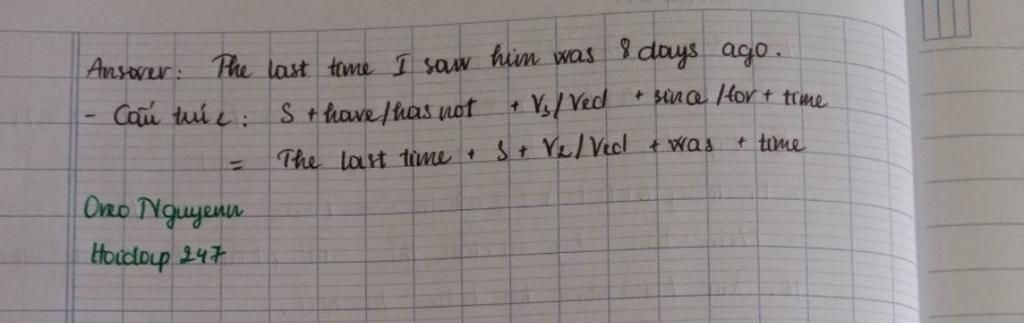 Answer: The last time I saw him was 8 days ago.
- Cấu trúc: S + have/has not + V3/Ved + since/for + time
= The last time + S + V2/Ved + was + time
Oreo Nguyenn
Hoidap 247